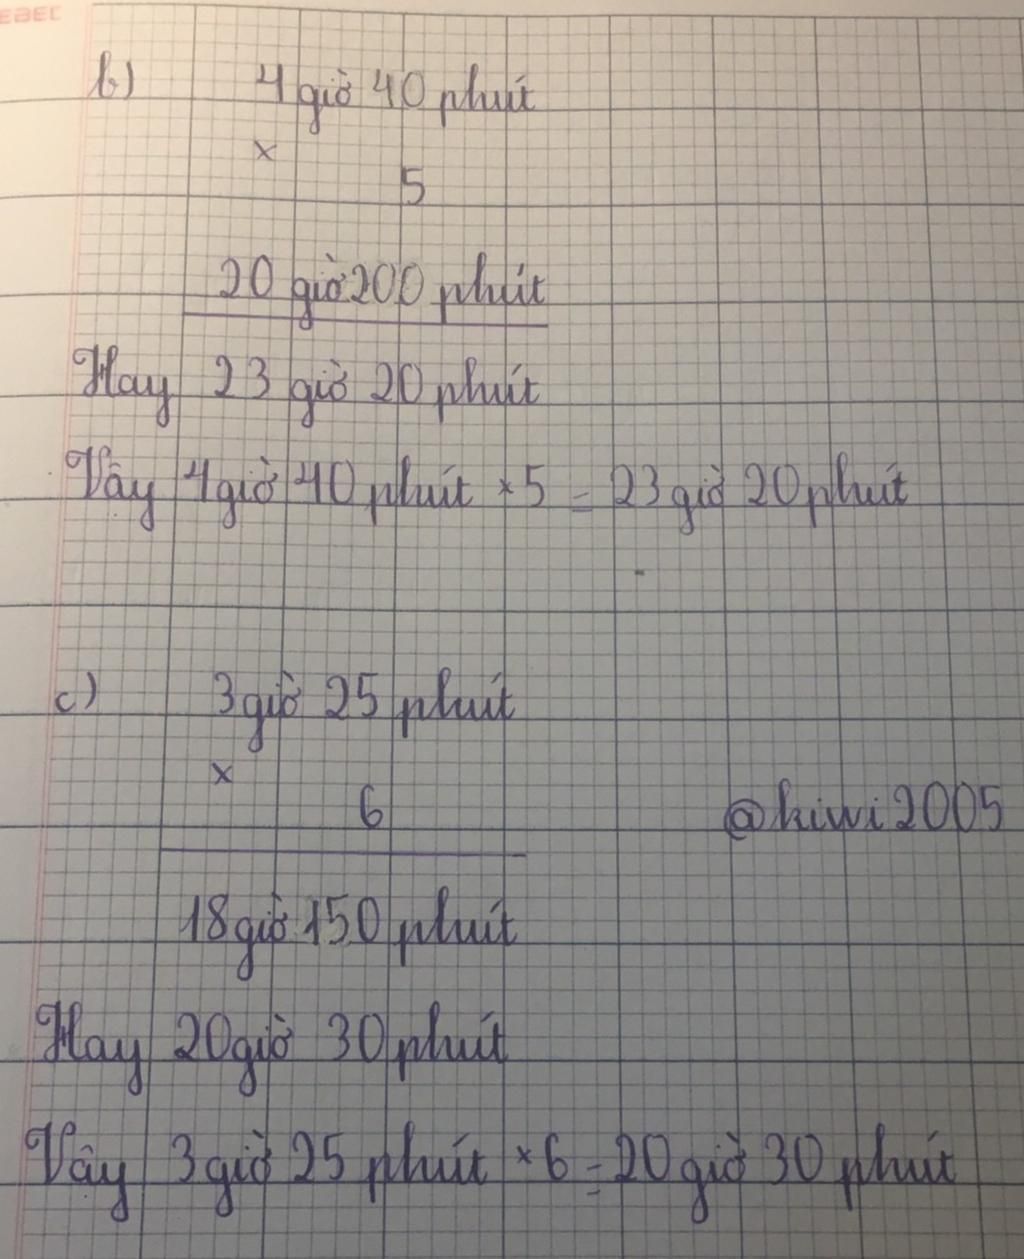 EBEC
b) 4 giờ 40 phút
×
5
20 giờ 200 phút
Hay 23 giờ 20 phút
Vây 4 giờ 40 phút × 5 = 23 giờ 20 phút
c) 3 giờ 25 phút
×
6
@kiwi2005
18 giờ 150 phút
Hay 20 giờ 30 phút
Vây 3 giờ 25 phút × 6 = 20 giờ 30 phút